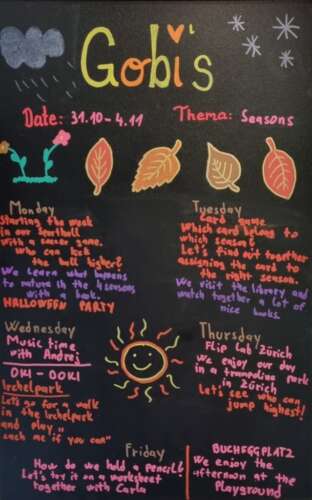 Gobi's
Date: 31.10 - 4.11
Thema: Seasons
Monday
Starting the week
in our
with a soccer game.
Who can kick
the ball higher?
We learn what happens
to nature in the 4 seasons
with a book.
HALLOWEEN PARTY
Tuesday
Card game
Which card belongs to
which season?
Let's find out together
assigning the card to
the right season.
We visit the library and
watch together a lot of
nice books.
Wednesday
Music time
with Andrej
OKI - DOKI
Irchelpark
Let's go for a walk
in the Irchelpark
and play "
catch me if you can"
Thursday
Flip Lab Zürich
We enjoy our day
in a trampoline park
in Zürich
Let's see who can
jump highest!
Friday
How do we hold a pencil?
Let's try it on a worksheet
together with Carla
BUCHEGGPLATZ
We enjoy the
afternoon at the
Playground